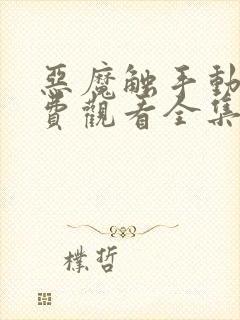 惡魔触手動
費觀看全集
樸哲